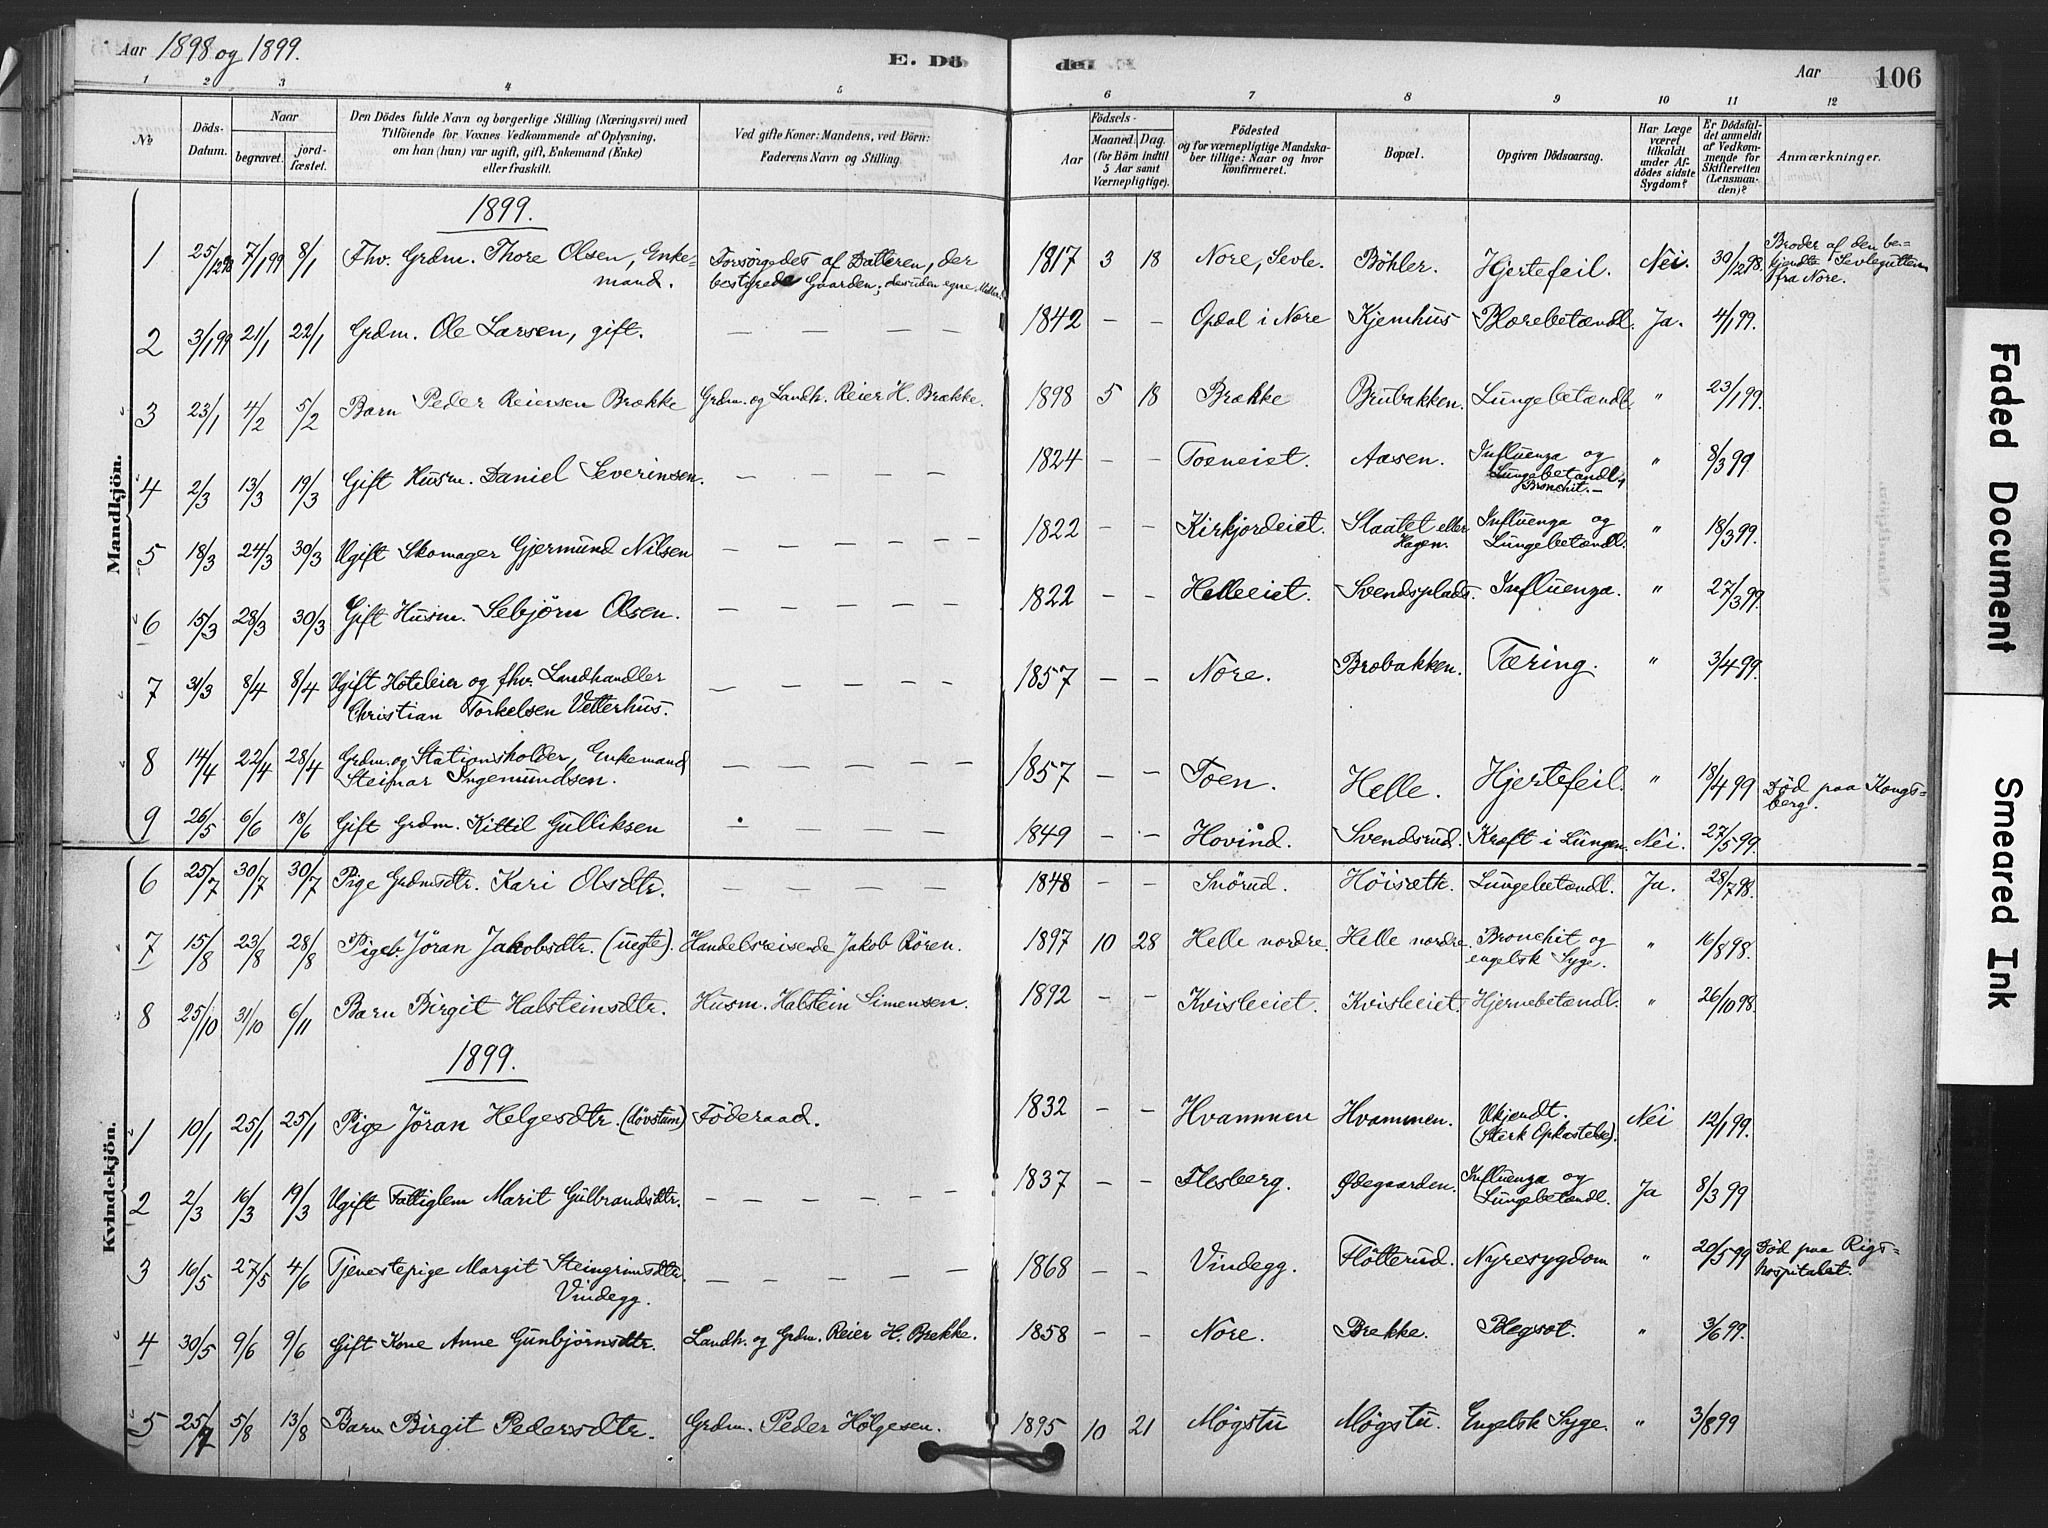 Aar 1898 og 1899.
E. Dö
Aar
106
1 2 3 4 5
6 7 8 9 10 11 12
№
Döds-Datum.
Naar
begravet.
jord-fæstet.
Den Dödes fulde Navn og borgerlige Stilling (Næringsvei) med
Tilföiende for Voxnes Vedkommende af Oplysning,
om han (hun) var ugift, gift, Enkemand (Enke)
eller fraskilt.
Ved gifte Koner: Mandens, ved Börn:
Faderens Navn og Stilling.
Födsels-
Aar
Maaned. Dag.
(for Börn indtil
5 Aar samt
Værnepligtige).
Födested
og for værnepligtige Mandska-
ber tillige: Naar og hvor
konfirmeret.
Bopæl.
Opgiven Dödsaarsag.
Har Læge
været
tilkaldt
under Af-
dödes sidste
Sygdom?
Er Dödsfal-
det anmeldt
af Vedkom-
mende for
Skifteretten
(Lensman-
den)?
Anmærkninger.
Mandkjön.
1899.
1 25/12 98 7/1 99 8/1 Fhv. Grdm. Thore Olsen, Enke-
mand. Forsörgedes af Datteren, der
bestyrede Gaarden; desuden egne Midler. 1817 3 18 Nore, Sevle. Böhler. Hjertefeil. Nei. 30/12 98. Broder af den be-
kjendte Sevleguttem
fra Nore.
2 3/1 99 21/1 22/1 Grdm. Ole Larsen, gift. — — — — — 1842 – – Opdal i Nore Kjemhus Blærebetændl. Ja. 4/1 99.
3 23/1 4/2 5/2 Barn Peder Reiersen Brække Grdm. og Landh. Reier H. Brække. 1898 5 18 Brække Brubakken. Lungebetændl. " 23/1 99.
4 2/3 13/3 19/3 Gift Husm. Daniel Severinsen. — — — — — 1824 – – Toeneiet. Aasen. Influenza og
Lungebetændl.,
Bronchit. – " 8/3 99
5 18/3 24/3 30/3 Ugift Skomager Gjermund Nilsen — — — — — 1822 – – Kirkjordeiet. Slaatet eller
Hagen. Influenza og
Lungebetændl. " 18/3 99.
6 15/3 28/3 30/3 Gift Husm. Sebjörn Olsen. — — — — — 1822 – – Helleeiet. Svendsplads. Influenza. " 27/3 99.
7 31/3 8/4 8/4 Ugift Hoteleier og fhv. Landhandler
Christian Torkelsen Vetterhus. — — — — — 1857 – – Nore. Brobakken. Tæring. " 3/4 99.
8 14/4 22/4 28/4 Grdm. og Stationsholder, Enkemand
Steinar Ingemundsen. — — — — — 1857 – – Toen. Helle. Hjertefeil. " 18/4 99 Död paa Kongs-
berg.
9 26/5 6/6 18/6 Gift Grdm. Kittil Gulliksen — — — — — 1849 – – Hovind. Svendsrud. Kræft i Lungen. Nei. 27/5 99.
6 25/7 30/7 30/7 Pige Grdmsdtr. Kari Olsdtr. — — — — — 1848 – – Snörud. Höisæth. Lungebetændl. Ja. 28/7 98.
7 15/8 23/8 28/8 Pigeb. Jöran Jakobsdtr. (uegte). Handelsreisende Jakob Rören. 1897 10 28 Helle nordre. Helle nordre. Bronchit og
engelsk Syge. " 16/8 98.
8 25/10 31/10 6/11 Barn Birgit Halsteinsdtr. Husm. Halstein Simensen. 1892 – – Kvisleeiet. Kvisleeiet. Hjernebetændl. " 26/10 98.
Kvindekjön.
1899.
1 10/1 25/1 25/1 Pige Jöran Helgesdtr. (dövstum) Föderaad. 1832 – – Hvammen Hvammen. Ukjendt.
(Sterk Opkastelse). Nei 12/1 99.
2 2/3 16/3 19/3 Ugift Fattiglem Marit Gulbrandsdtr. — — — — — 1837 – – Flesberg. Ödegaarden. Influenza og
Lungebetændl. Ja 8/3 99
3 16/5 27/5 4/6 Tjenestepige Margit Steingrimsdtr.
Vindegg. — — — — — 1868 – – Vindegg. Flötterud. Nyresygdom " 20/5 99 Död paa Rigs-
hospitalet.
4 30/5 9/6 9/6 Gift Kone Anne Gunbjörnsdtr. Landh. og Grdm. Reier H. Brekke. 1858 – – Nore. Brekke. Blegsot. " 3/6 99.
5 25/7 5/8 13/8 Barn Birgit Pedersdtr. Grdm. Peder Holgesen. 1895 10 21 Mögstu Mögstu. Engelsk Syge. " 3/8 99
Faded Document
Smeared Ink